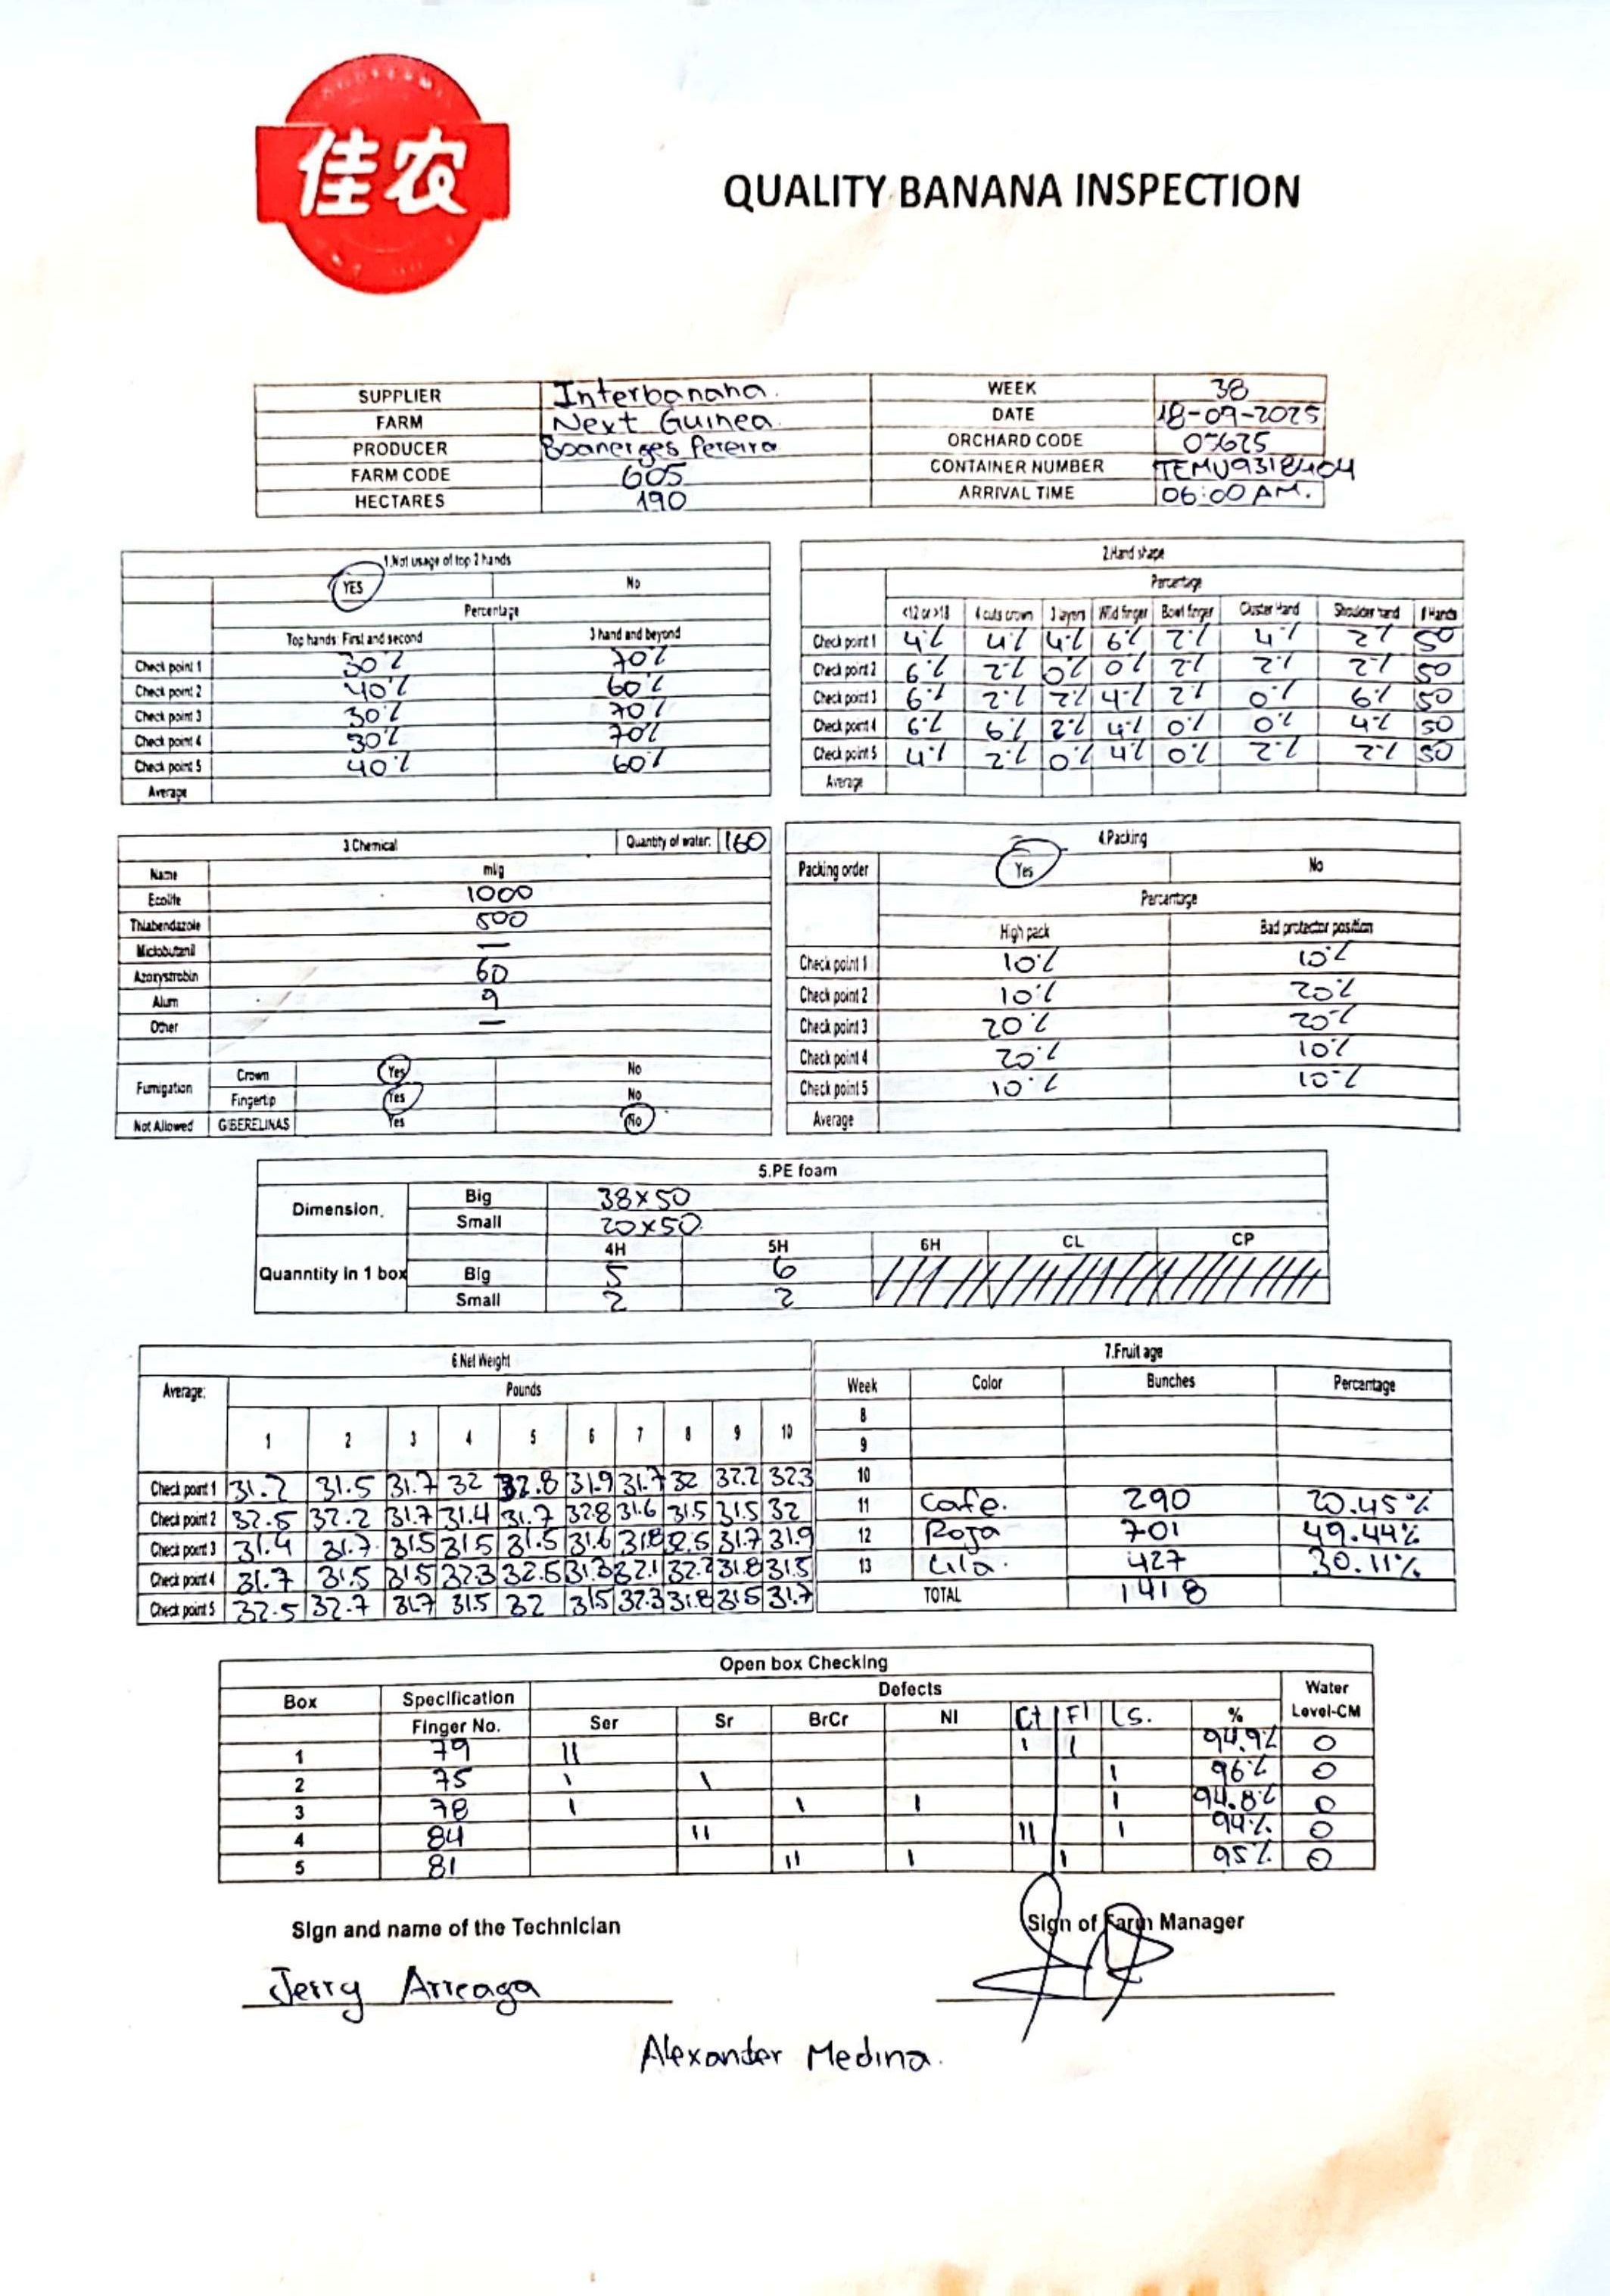 佳农
QUALITY BANANA INSPECTION
SUPPLIER Interbanana. WEEK 38
FARM Next Guinea. DATE 18-09-2025
PRODUCER Boanerges Pereira ORCHARD CODE 07625
FARM CODE 605 CONTAINER NUMBER
HECTARES 190 ARRIVAL TIME 06:00 AM.
1.Not usage of top 2 hands
YES No
Percentage
Top hands: First and second 3 hand and beyond
Check point 1 30% 70%
Check point 2 40% 60%
Check point 3 30% 70%
Check point 4 30% 70%
Check point 5 40% 60%
Average
2.Hand shape
Percentage
<12 or >18 4 cuts crown 3 layers Wild finger Bowl finger Cluster Hand Shoulder hand # Hands
Check point 1 4% 4% 4% 6% 2% 4% 2% 50
Check point 2 6% 2% 0% 0% 2% 2% 2% 50
Check point 3 6% 2% 2% 4% 2% 0% 6% 50
Check point 4 6% 6% 2% 4% 0% 0% 4% 50
Check point 5 4% 2% 0% 4% 0% 2% 2% 50
Average
3.Chemical Quantity of water: 160
Name ml/g
Ecolife 1000
Thiabendazole 500
Miclobutanil —
Azoxystrobin 60
Alum 9
Other —
Fumigation Crown Yes No
Fingertip Yes No
Not Allowed GIBERELINAS Yes No
4.Packing
Packing order Yes No
Percentage
High pack Bad protector position
Check point 1 10% 10%
Check point 2 10% 20%
Check point 3 20% 20%
Check point 4 20% 10%
Check point 5 10% 10%
Average
5.PE foam
Dimension. Big 38x50
Small 20x50.
4H 5H 6H CL CP
Quanntity in 1 box Big 5 6
Small 2 2
6.Net Weight
Average: Pounds
1 2 3 4 5 6 7 8 9 10
Check point 1 31.2 31.5 31.7 32 32.8 31.9 31.7 32 32.2 32.3
Check point 2 32.5 32.2 31.7 31.4 31.7 32.8 31.6 31.5 31.5 32
Check point 3 31.4 31.7 31.5 31.5 31.5 31.6 31.8 32.5 31.7 31.9
Check point 4 31.7 31.5 31.5 32.3 32.6 31.3 32.1 32.2 31.8 31.5
Check point 5 32.5 32.7 31.7 31.5 32 31.5 32.3 31.8 31.5 31.7
7.Fruit age
Week Color Bunches Percentage
8
9
10
11 Cafe. 290 20.45%
12 Roja 701 49.44%
13 Lila. 427 30.11%
TOTAL 1418
Open box Checking
Box Specification Defects Water
Finger No. Ser Sr BrCr NI Ct Fl Ls. % Level-CM
1 79 II I I 94.9% 0
2 75 I I I 96% 0
3 78 I I I I 94.8% 0
4 84 II II I 94% 0
5 81 II I I 95% 0
Sign and name of the Technician Sign of Farm Manager
Jerry Arreaga
Alexander Medina.